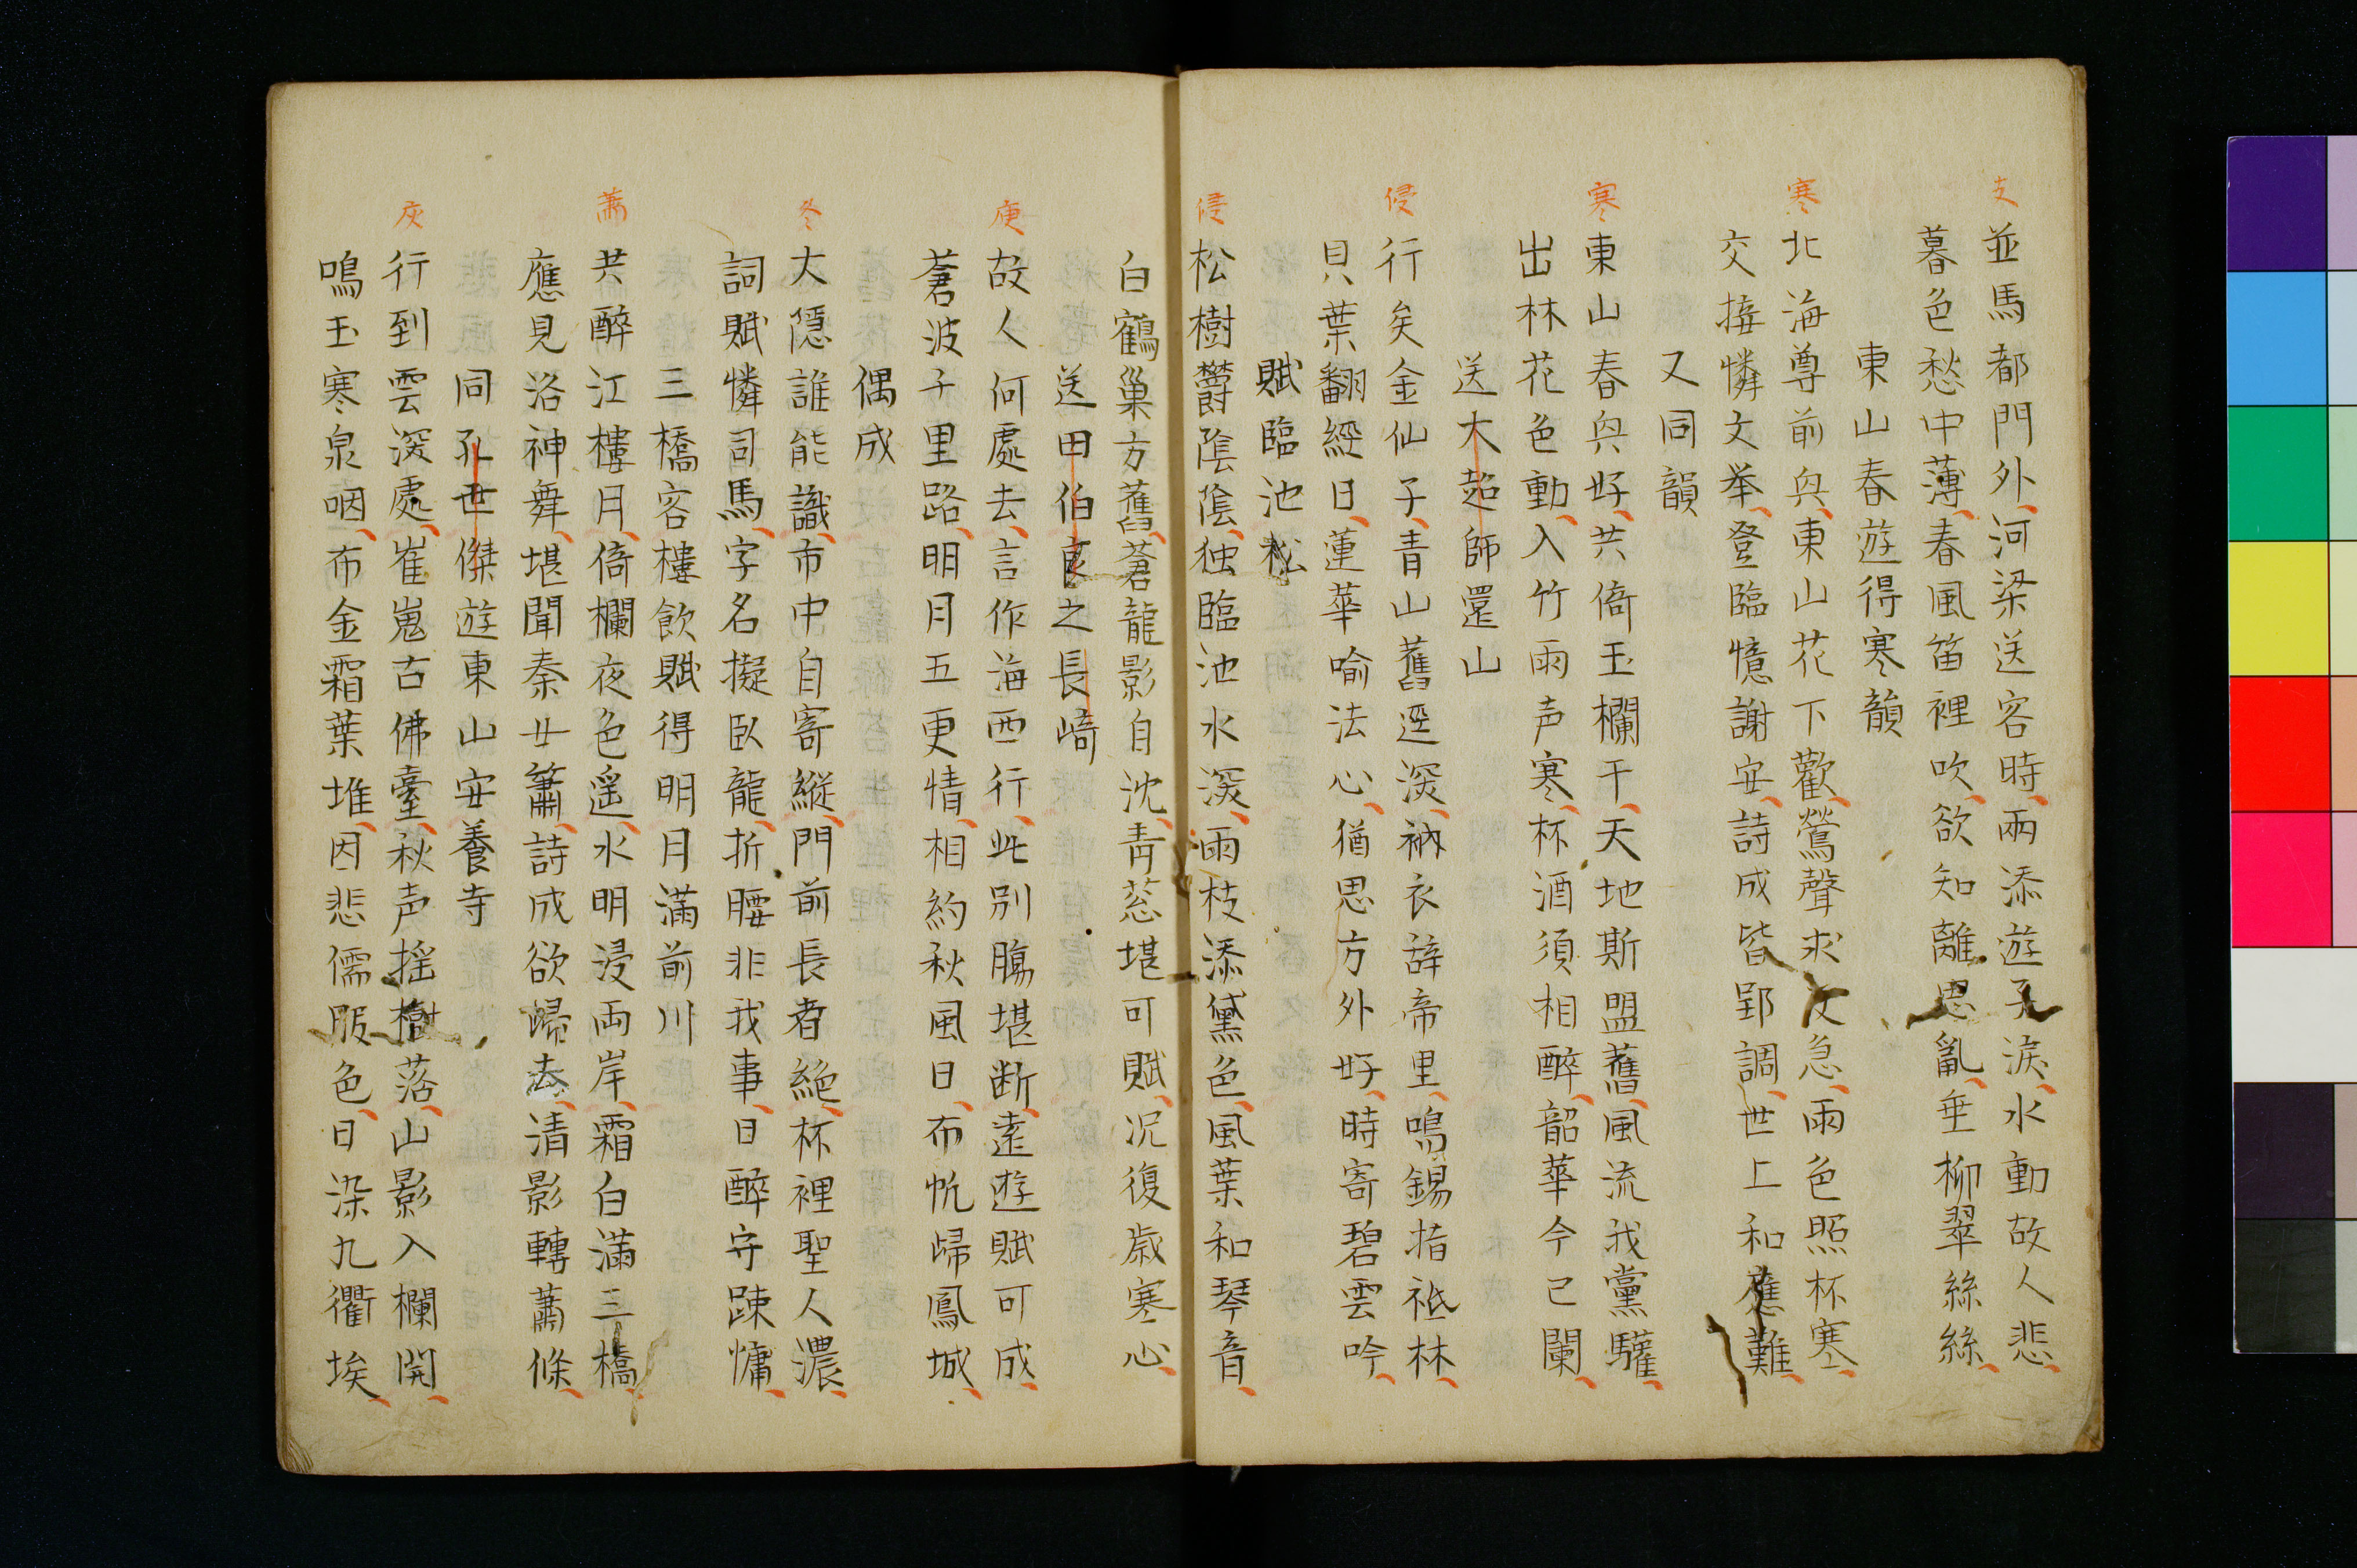 支
並馬都門外河梁送客時兩添遊子淚水動故人悲
暮色愁中薄春風笛裡吹欲知離思亂垂柳翠絲絲
東山春遊得寒韻
寒
北海尊前與東山花下歡鶯聲求友急雨色照杯寒
交接憐文挙登臨憶謝安詩成皆郢調世上和應難
又同韻
寒
東山春與好共倚玉欄干天地斯盟舊風流我黨驩
出林花色動入竹雨声寒杯酒須相醉韶華今已闌
送大超師還山
侵
行矣金仙子青山舊逕深衲衣辞帝里鳴錫指祗林
貝葉翻經日蓮華喻法心猶思方外好時寄碧雲吟
賦臨池松
侵
松樹欝陰陰独臨池水深雨枝添黛色風葉和琴音
白鶴巢方舊蒼龍影自沈青葱堪可賦况復歳寒心
送田伯良之長﨑
庚
故人何處去言作海西行此別腸堪断遠遊賦可成
蒼波千里路明月五更情相約秋風日布帆帰鳳城
偶成
冬
大隠誰能識市中自寄縱門前長者絶杯裡聖人濃
詞賦憐司馬字名擬臥龍折腰非我事日醉守踈慵
三橋客樓飲賦得明月滿前川
蕭
共醉江樓月倚欄夜色遥水明浸両岸霜白滿三橋
應見洛神舞堪聞秦女簫詩成欲帰去清影轉蕭條
同孔世傑遊東山安養寺
灰
行到雲深處崔嵬古佛臺秋声揺樹落山影入欄開
鳴玉寒泉咽布金霜葉堆因悲儒服色日染九衢埃